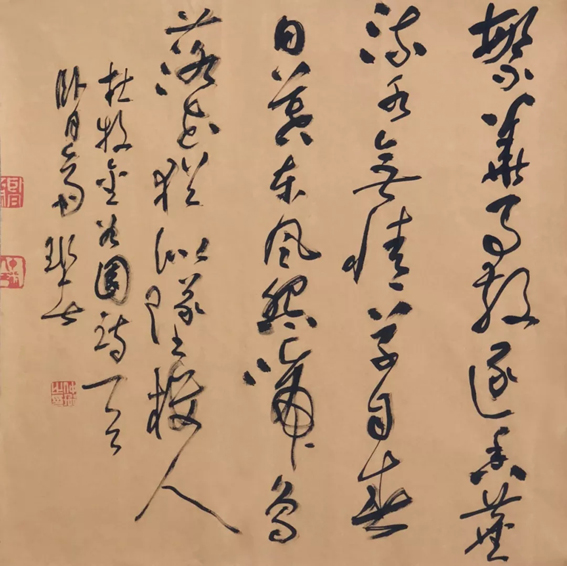 繁華事散逐香塵
流水無情草自春
日暮東風怨啼鳥
落花猶似墜樓人
杜牧金谷園詩一首
卧月